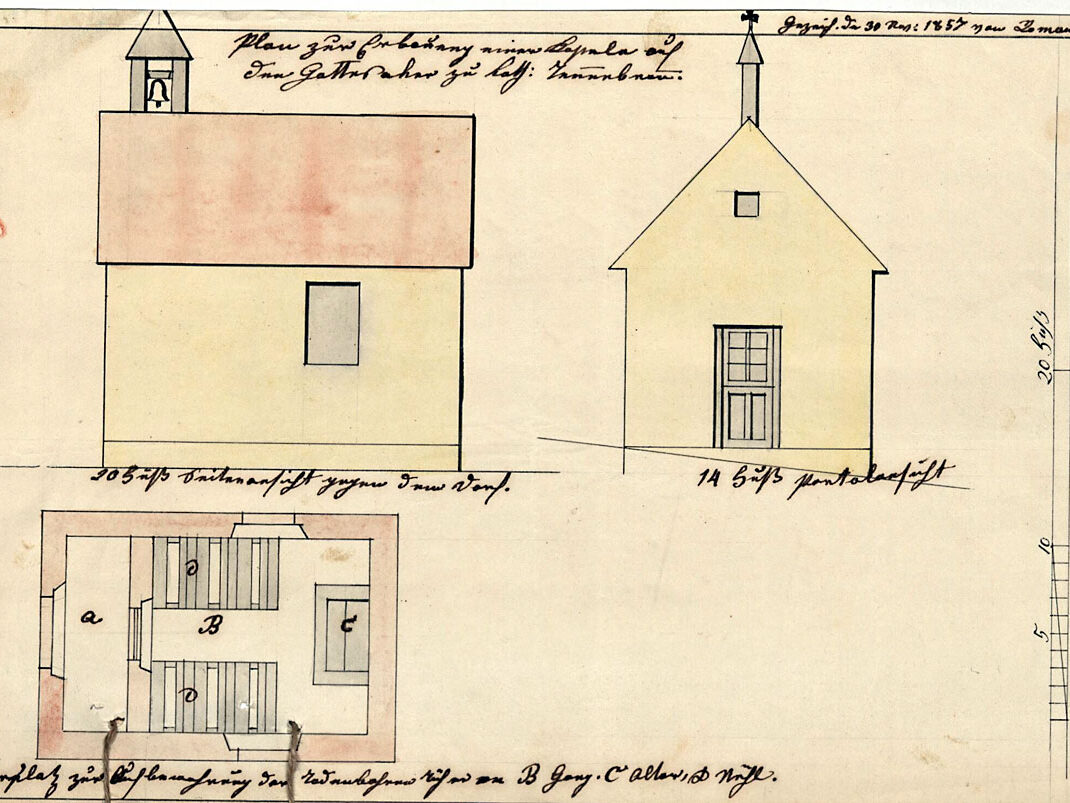 Gezeich. de 30 Nov: 1857 von
Plan zur Erbauung einer Kapele auf
den Gottesaker zu kath: Tennebron:
20 Fuß
20 Fuß Seitenansicht gegen dem Dorf.
14 Fuß Portalansicht
10
5
a
D
B
C
D
zur Aufbewahrung der B Gang. C Alter, D Stühl.